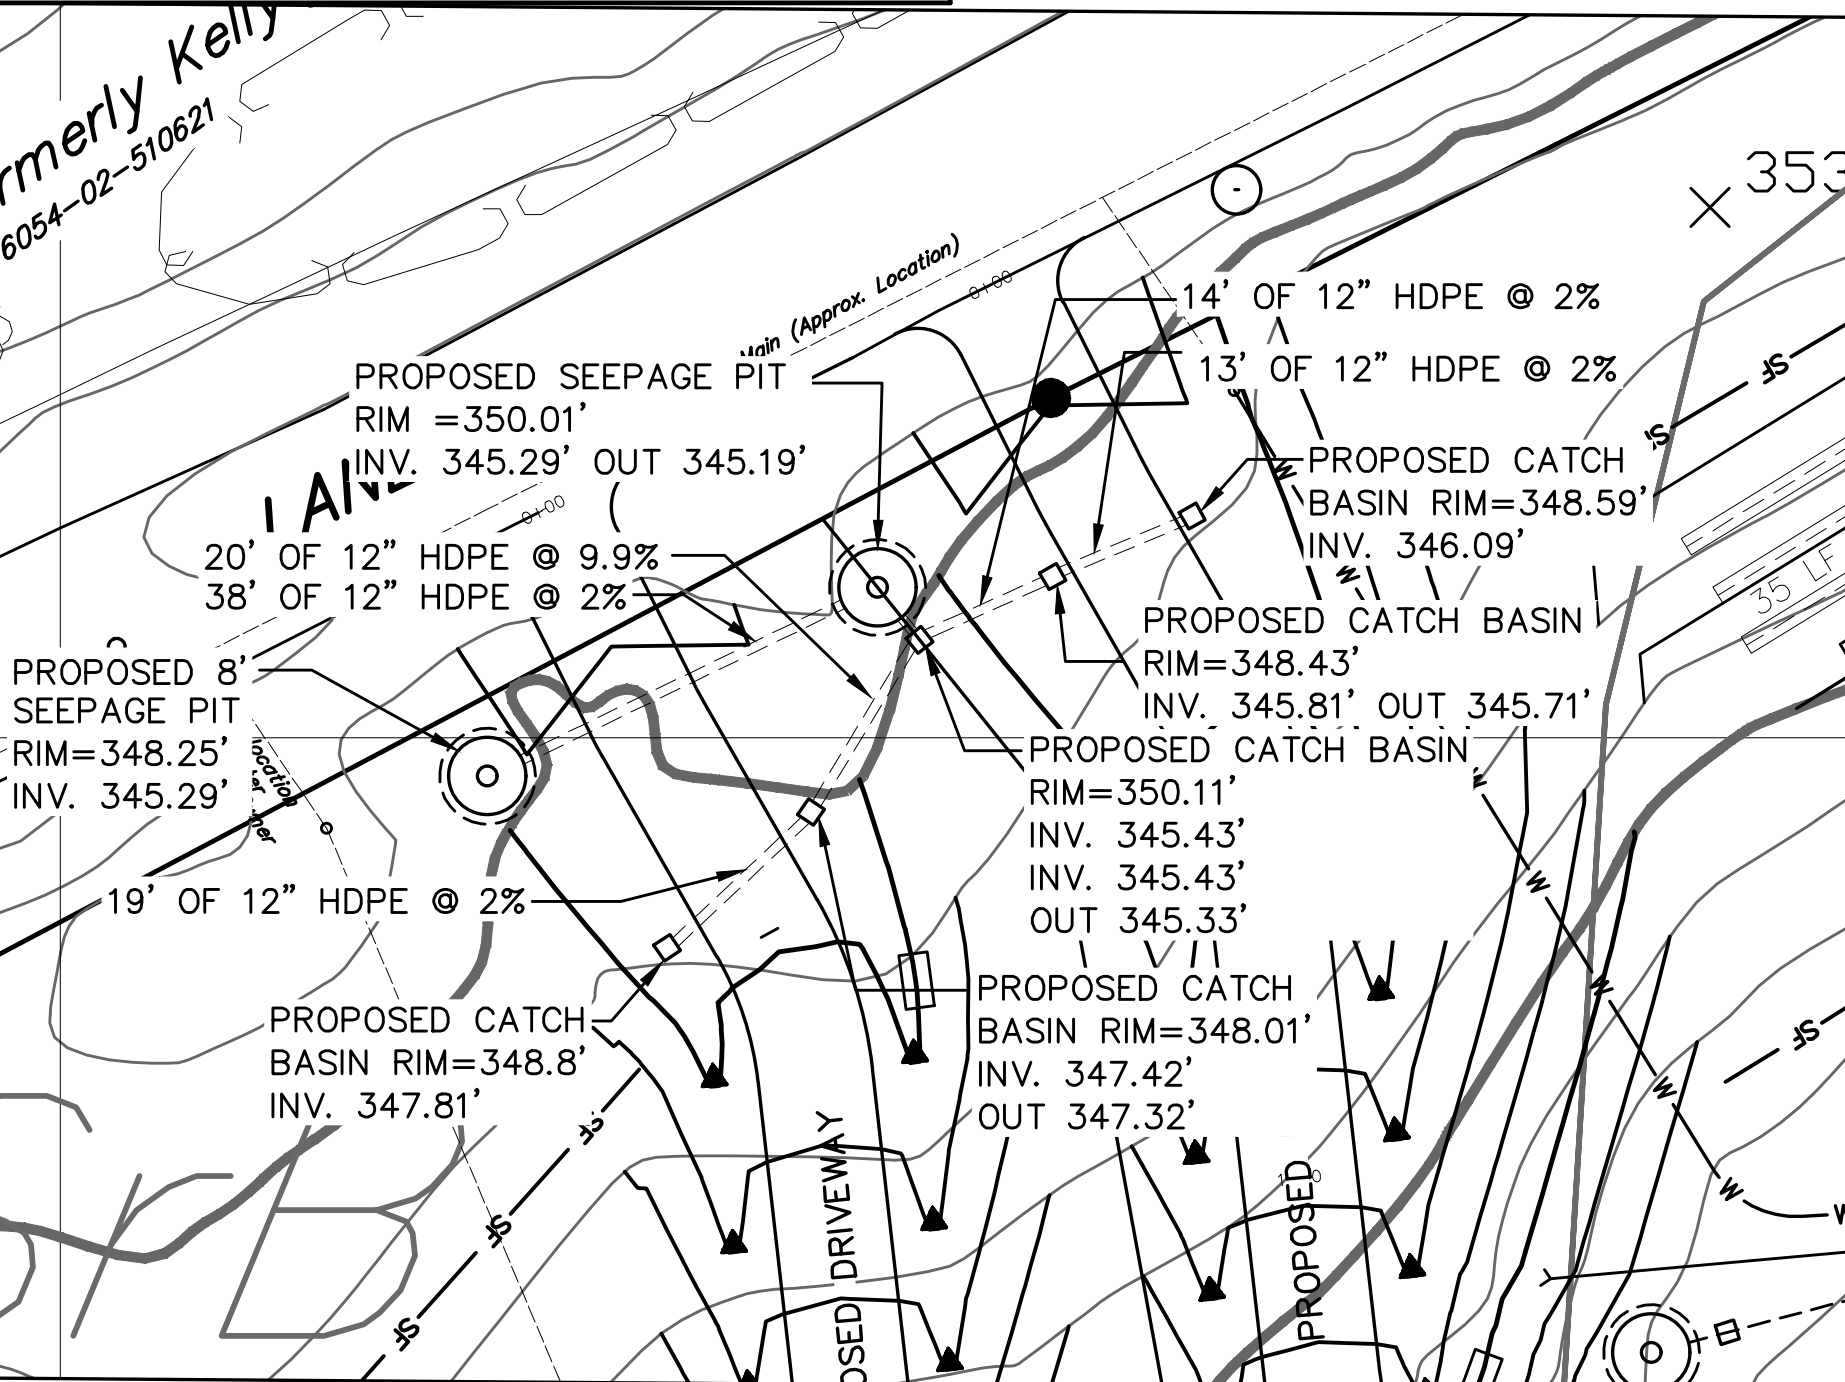 rmerly Kelly
6054-02-510621
353
Main (Approx. Location)
0+00
14' OF 12" HDPE @ 2%
13' OF 12" HDPE @ 2%
PROPOSED SEEPAGE PIT
RIM =350.01'
INV. 345.29' OUT 345.19'
SF
SF
LAN
0+00
PROPOSED CATCH
BASIN RIM=348.59'
INV. 346.09'
W
W
20' OF 12" HDPE @ 9.9%
38' OF 12" HDPE @ 2%
35 LF
PROPOSED CATCH BASIN
RIM=348.43'
INV. 345.81' OUT 345.71'
PROPOSED 8'
SEEPAGE PIT
RIM=348.25'
INV. 345.29'
location
PROPOSED CATCH BASIN
RIM=350.11'
INV. 345.43'
INV. 345.43'
OUT 345.33'
W
W
W
19' OF 12" HDPE @ 2%
PROPOSED CATCH
BASIN RIM=348.8'
INV. 347.81'
PROPOSED CATCH
BASIN RIM=348.01'
INV. 347.42'
OUT 347.32'
SF
SF
W
W
W
SF
SF
OSED DRIVEWAY
PROPOSED